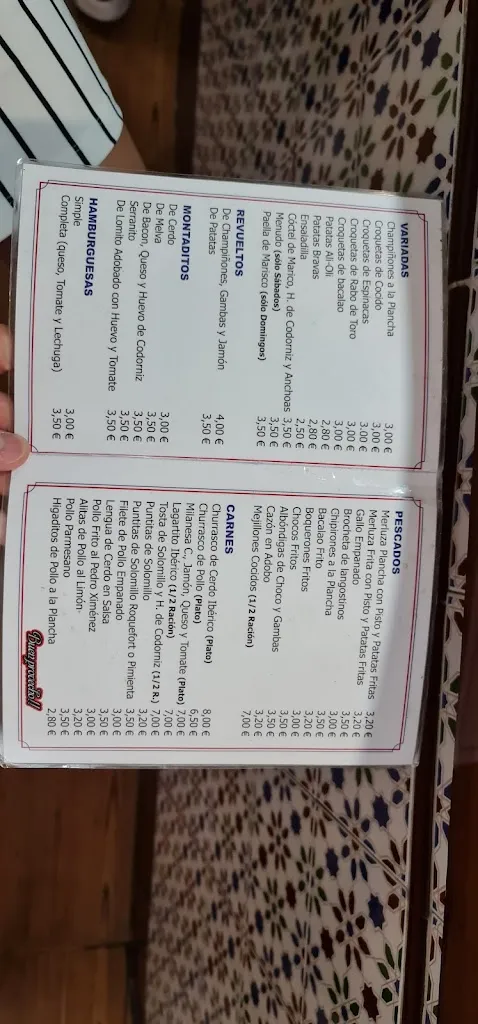 VARIADAS
Champiñones a la Plancha 3,00 €
Croquetas de Cocido 3,00 €
Croquetas de Espinacas 3,00 €
Croquetas de Rabo de Toro 3,00 €
Croquetas de bacalao 3,00 €
Patatas Ali-Oli 2,80 €
Patatas Bravas 2,80 €
Ensaladilla 2,50 €
Cóctel de Marico, H. de Codorniz y Anchoas 3,50 €
Menudo (sólo Sábados) 3,50 €
Paella de Marisco (sólo Domingos) 3,50 €
REVUELTOS
De Champiñones, Gambas y Jamón 4,00 €
De Patatas 3,50 €
MONTADITOS
De Cerdo 3,00 €
De Melva 3,50 €
De Bacon, Queso y Huevo de Codorniz 3,50 €
Serranito 3,50 €
De Lomito Adobado con Huevo y Tomate 3,50 €
HAMBURGUESAS
Simple 3,00 €
Completa (queso, Tomate y Lechuga) 3,50 €
PESCADOS
Merluza Plancha con Pisto y Patatas Fritas 3,20 €
Merluza Frita con Pisto y Patatas Fritas 3,20 €
Gallo Empanado 3,20 €
Brocheta de langostinos 3,50 €
Chipirones a la Plancha 3,00 €
Bacalao Frito 3,50 €
Boquerones Fritos 3,20 €
Chocos Fritos 3,00 €
Albóndigas de Choco y Gambas 3,50 €
Cazón en Adobo 3,20 €
Mejillones Cocidos (1/2 Ración) 7,00 €
CARNES
Churrasco de Cerdo Ibérico (Plato) 8,00 €
Churrasco de Pollo (Plato) 6,50 €
Milanesa C., Jamón, Queso y Tomate (Plato) 7,00 €
Lagartito Ibérico (1/2 Ración) 7,00 €
Tosta de Solomillo y H. de Codorniz (1/2 R.) 7,00 €
Puntitas de Solomillo 3,20 €
Puntitas de Solomillo Roquefort o Pimienta 3,50 €
Filete de Pollo Empanado 3,00 €
Lengua de Cerdo en Salsa 3,50 €
Pollo Frito al Pedro Ximénez 3,00 €
Alitas de Pollo al Limón 3,20 €
Pollo Parmesano 3,50 €
Higaditos de Pollo a la Plancha 2,80 €
Buen provecho!!